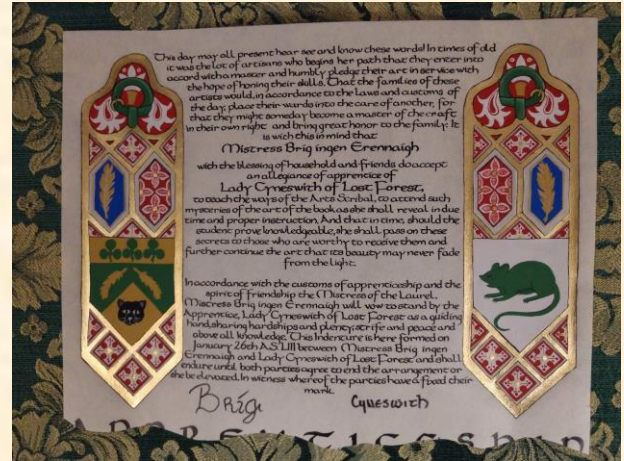 This day may all present hear see and know these words! In times of old
it was the lot of artisans who begins her path that they enter into
accord with a master and humbly pledge their art in service with
the hope of honing their skills. That the families of these
artists would, in accordance to the Laws and customs of
the day, place their wards into the care of another, for
that they might someday become a master of the craft
in their own right and bring great honor to the family: It
is with this in mind that
Mistress Brig ingen Erennaigh
with the blessing of household and friends do accept
an allegiance of apprentice of
Lady Cyneswith of Lost Forest,
to teach the ways of the Arts Scribal, to attend such
mysteries of the art of the book as she shall reveal in due
time and proper instruction. And that in time, should the
student prove knowledgeable, she shall pass on these
secrets to those who are worthy to receive them and
further continue the art that its beauty may never fade
from the light.
In accordance with the customs of apprenticeship and the
spirit of friendship the Mistress of the Laurel,
Mistress Brig ingen Erennaigh will vow to stand by the
Apprentice, Lady Cyneswith of Lost Forest as a guiding
hand, sharing hardships and plenty, strife and peace and
above all knowledge. This Indenture is here formed on
January 26th A.S. LIII between Mistress Brig ingen
Erennaigh and Lady Cyneswith of Lost Forest and shall
endure until both parties agree to end the arrangement or
she be elevated. In witness whereof the parties have a fixed their
mark.
Brígi Cyneswith